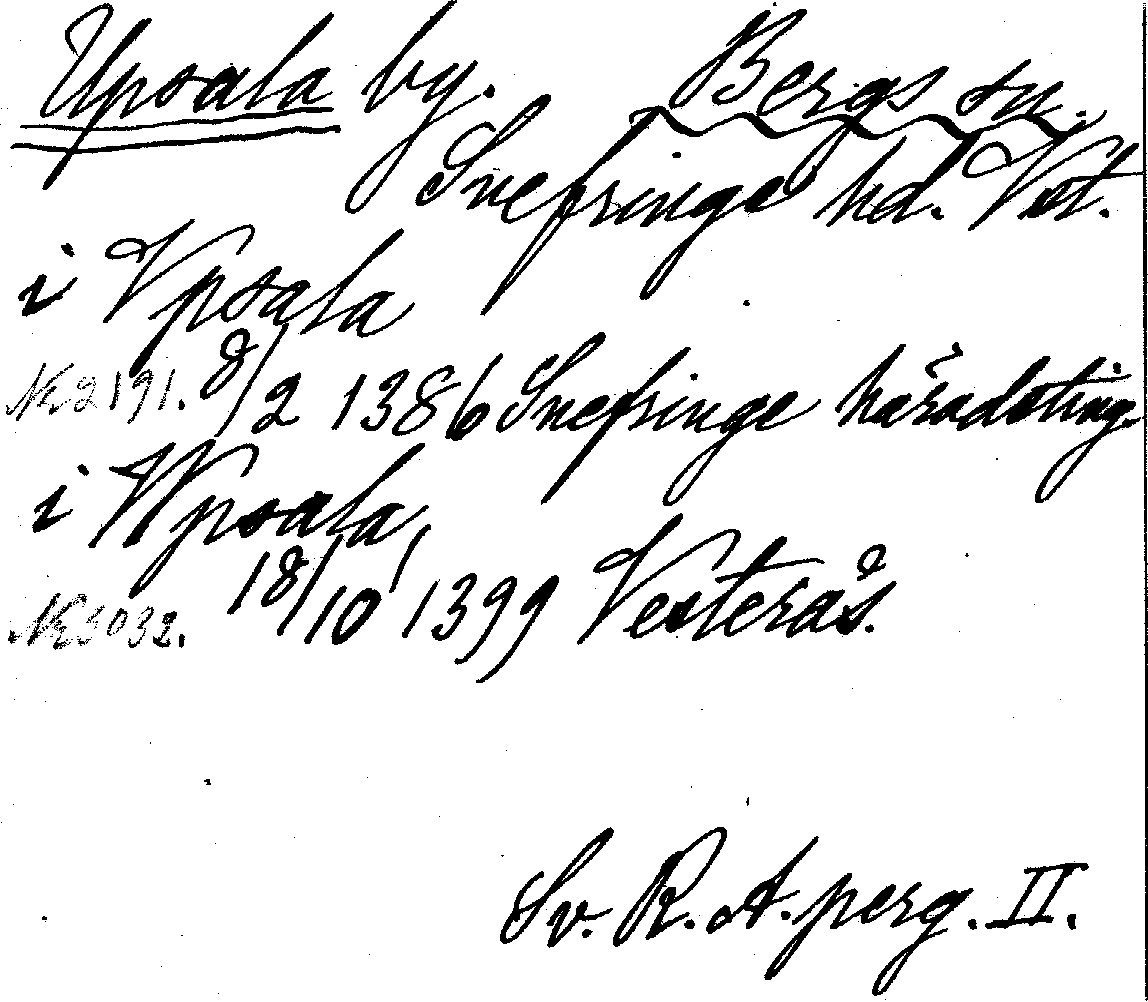 Upsala by. Bergs sn.
Snefringe hd. Vst.
i Vpsala
No 2191. 8/2 1386 Snefringe häradsting
i Wpsala
No 3032. 18/10 1399 Vesterås.
Sv. R. A. perg. II.